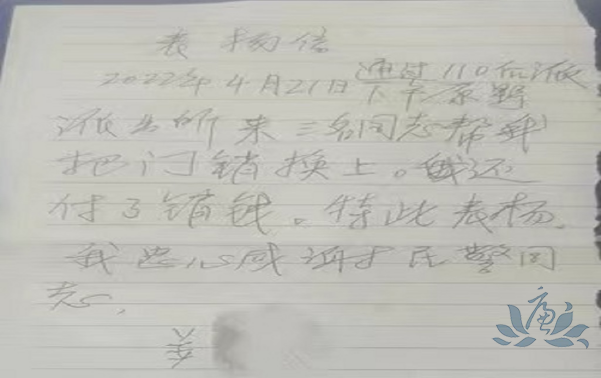 表扬信
2022年4月21日通过110
下
派出所来三名同志帮我
把门锁换上。我还
付了锁钱。特此表扬.
我忠心感谢 民警同
志.